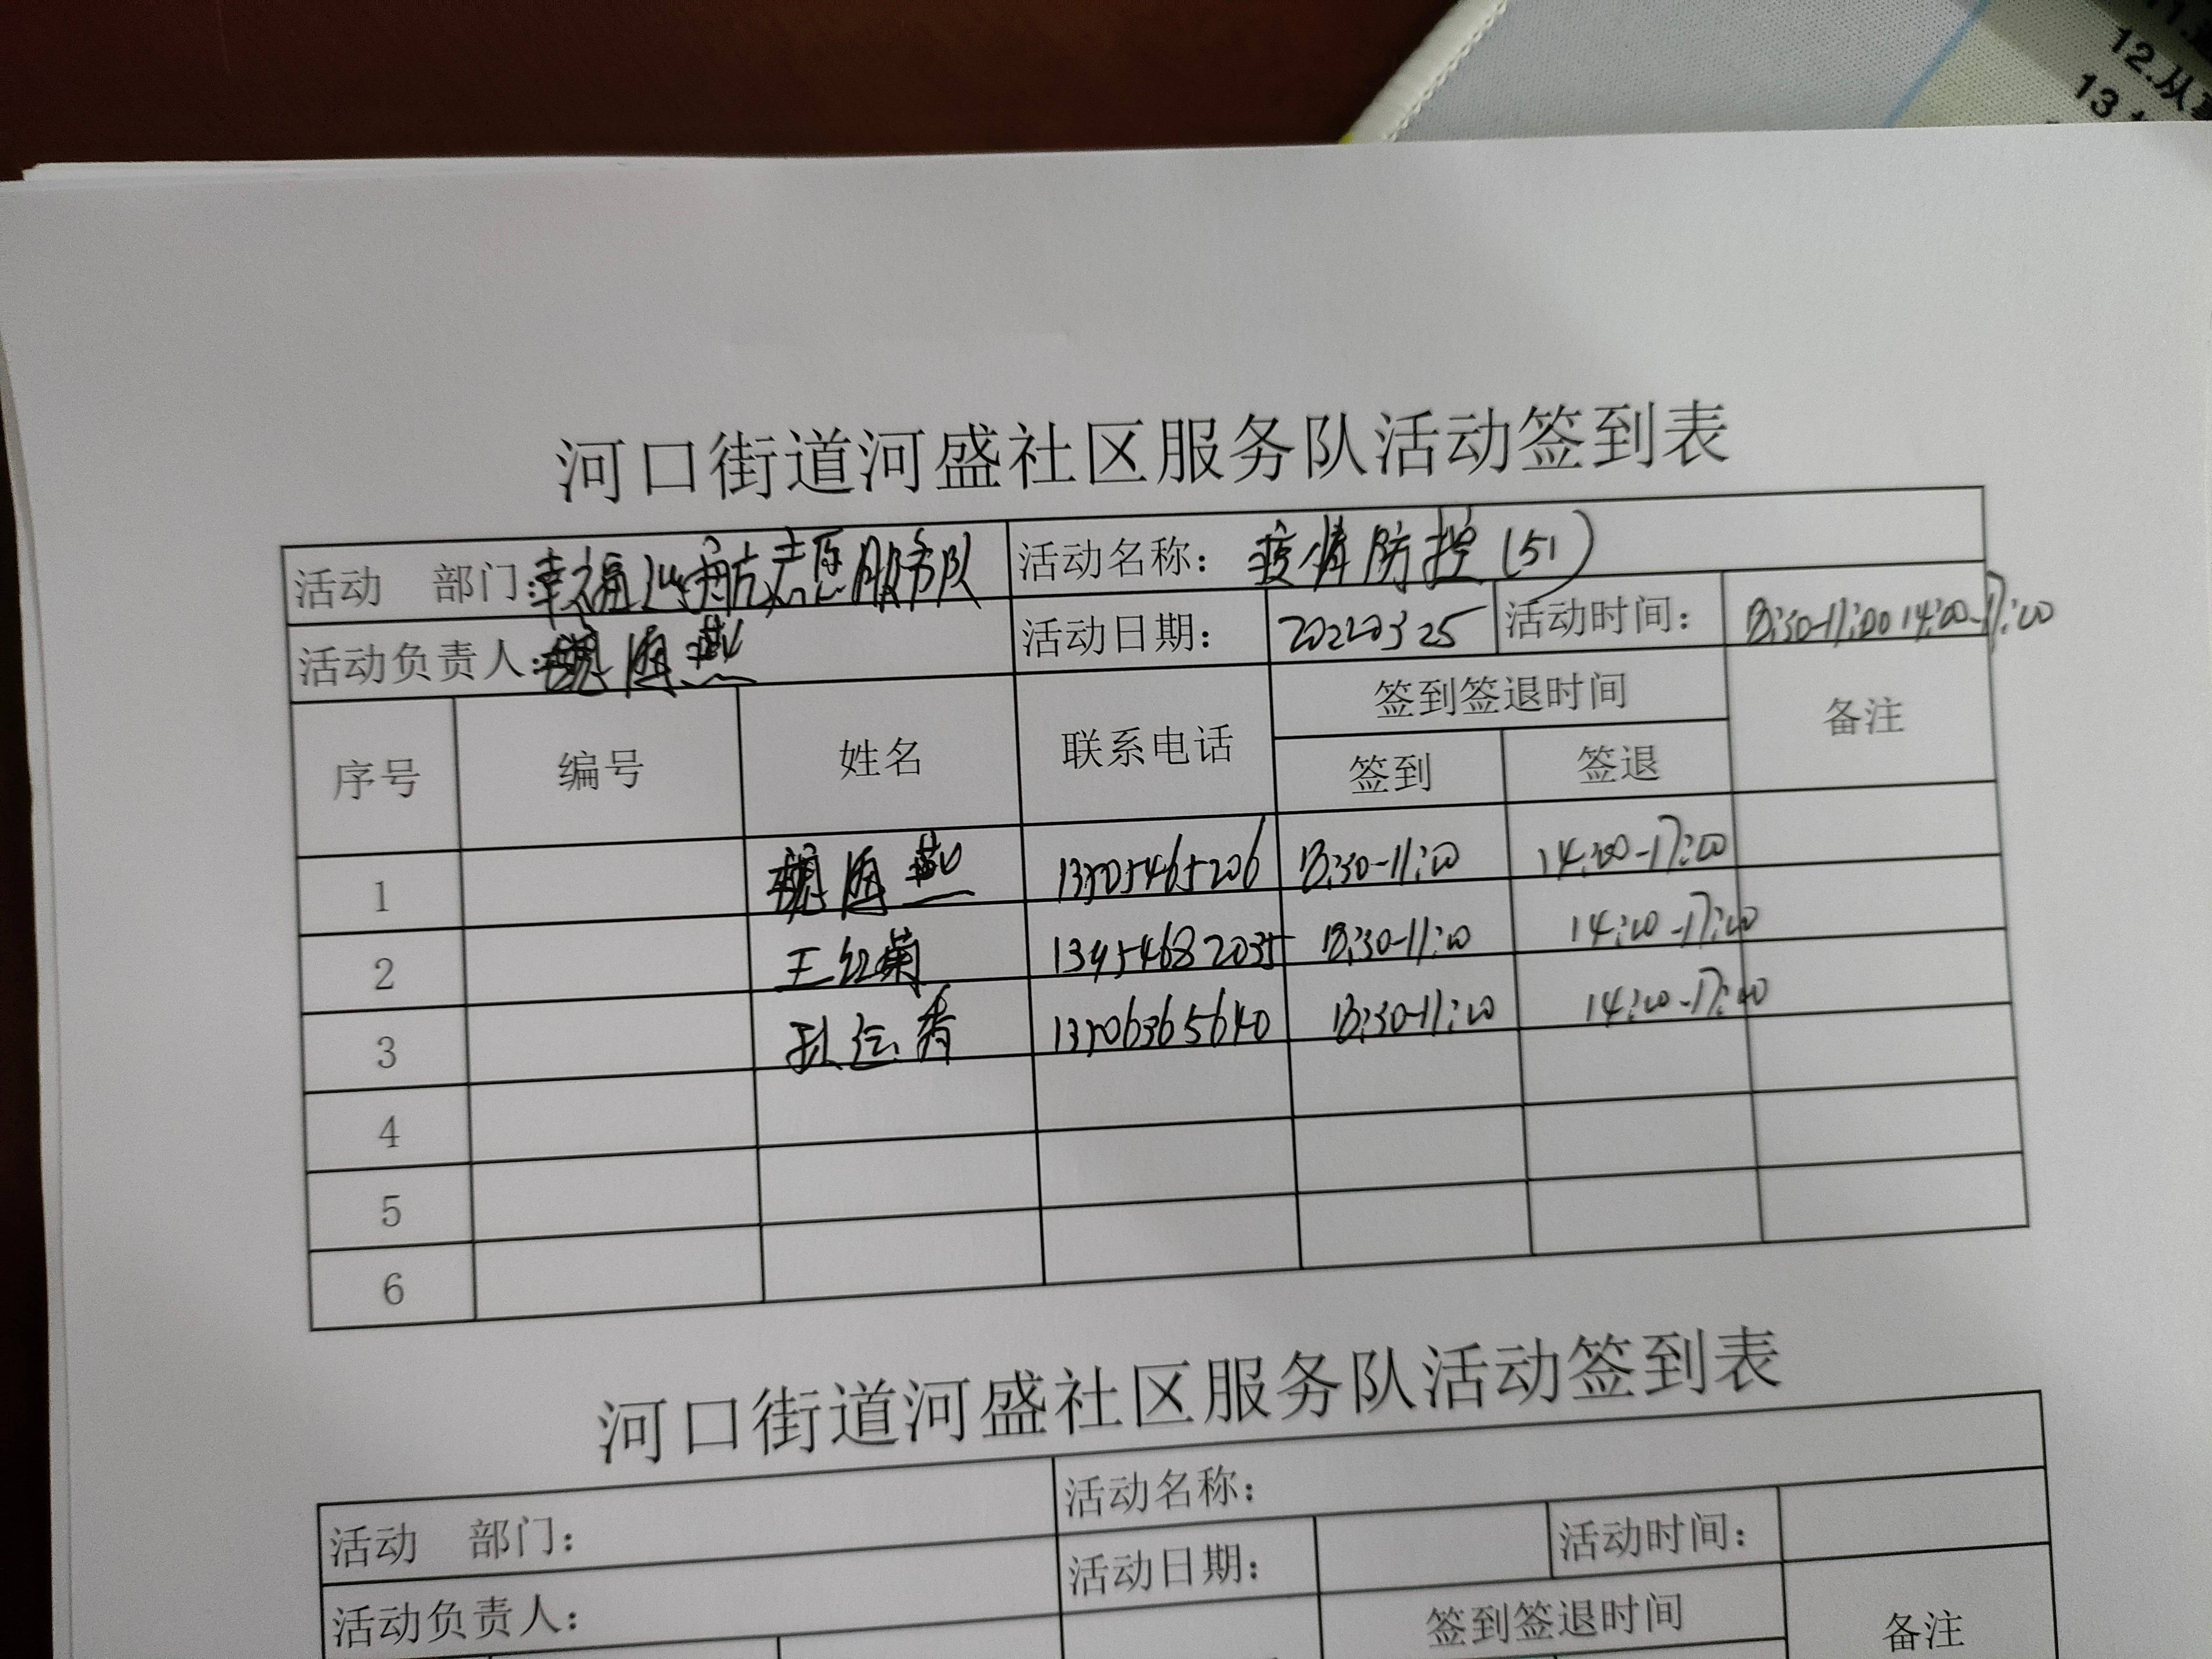 12.从
13.
河口街道河盛社区服务队活动签到表
活动 部门:幸福远航志愿服务队 活动名称: 疫情防控(51)
活动负责人:魏海燕 活动日期: 20220325 活动时间: 8:30-11:00 14:00-17:00
序号 编号 姓名 联系电话 签到签退时间 备注
签到 签退
1 魏海燕 13705465206 8:30-11:00 14:00-17:00
2 王红菊 8:30-11:00 14:00-17:00
3 13706365640 8:30-11:00 14:00-17:00
4
5
6
河口街道河盛社区服务队活动签到表
活动 部门: 活动名称:
活动负责人: 活动日期: 活动时间:
签到签退时间 备注